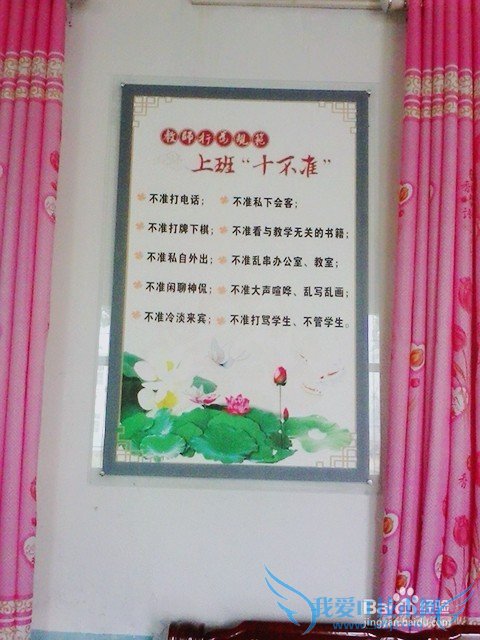 教师行为规范
上班“十不准”
不准打电话； 不准私下会客；
不准打牌下棋； 不准看与教学无关的书籍；
不准私自外出； 不准乱串办公室、教室；
不准闲聊神侃； 不准大声喧哗、乱写乱画；
不准冷淡来宾； 不准打骂学生、不管学生。
Bai 经验
jingyan.baidu.com